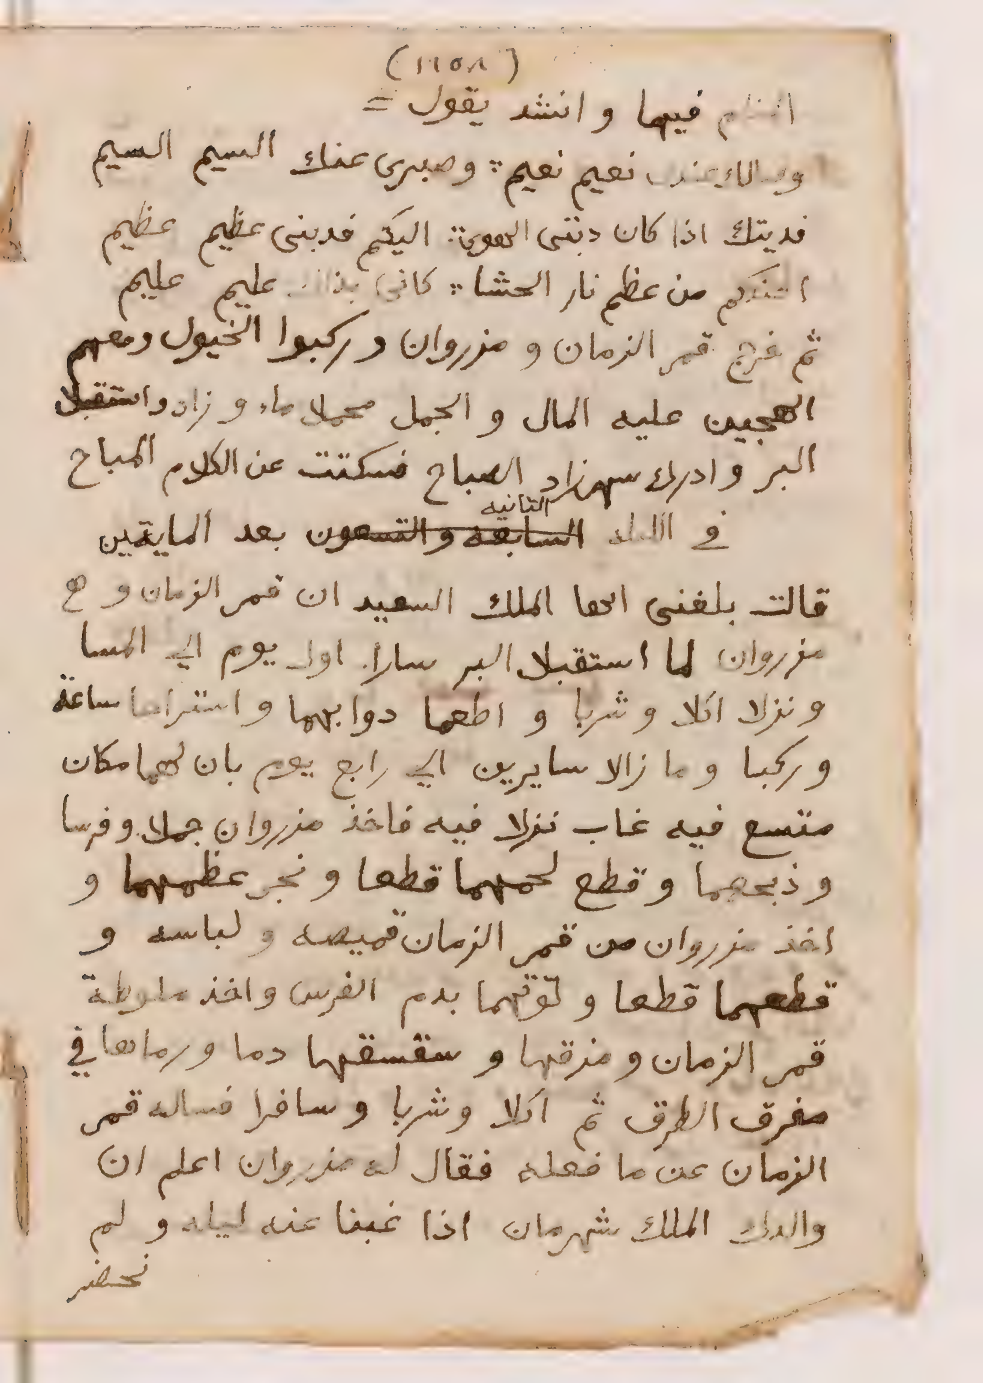 (١٦٥٨)
فيها و انشد يقول =
نعيم نعيم : و صبرى عنك اليسيم السيم
فديتك اذا كان دبتى الهوى : اليكم فدبنى عظيم عظيم
من عظم نار الحشا : كانى بذلك عليم عليم
ثم خرج قمر الزمان و مزروان و ركبوا الخيول ومعهم
الهجين عليه المال و الجمل محملا ماء و زاد واستقبلا
البر و ادرك سهرزاد الصباح فسكتت عن الكلام المباح
في الليله الثانيه بعد المايتين
قالت بلغنى ايها الملك السعيد ان قمر الزمان و ع
مزروان لما استقبلا البر سارا اول يوم الي المسا
و نزلا اكلا و شربا و اطعما دوابهما و استراحا ساعة
و ركبا و ما زالا سايرين الي رابع يوم بان لهما مكان
متسع فيه غاب نزلا فيه فاخذ مزروان جملا و فرسا
و ذبحهما و قطع لحمهما قطعا و نجر عظمهما و
اخذ مزروان من قمر الزمان قميصه و لباسه و
قطعهما قطعا و لوثهما بدم الفرس و اخذ ملوطة
قمر الزمان و مزقها و سقسقها دما و رماها في
مفرق الطرق ثم اكلا و شربا و سافرا فساله قمر
الزمان عن ما فعله فقال له مزروان اعلم ان
والدك الملك شهرمان اذا غبنا عنه ليله و لم
نحضر